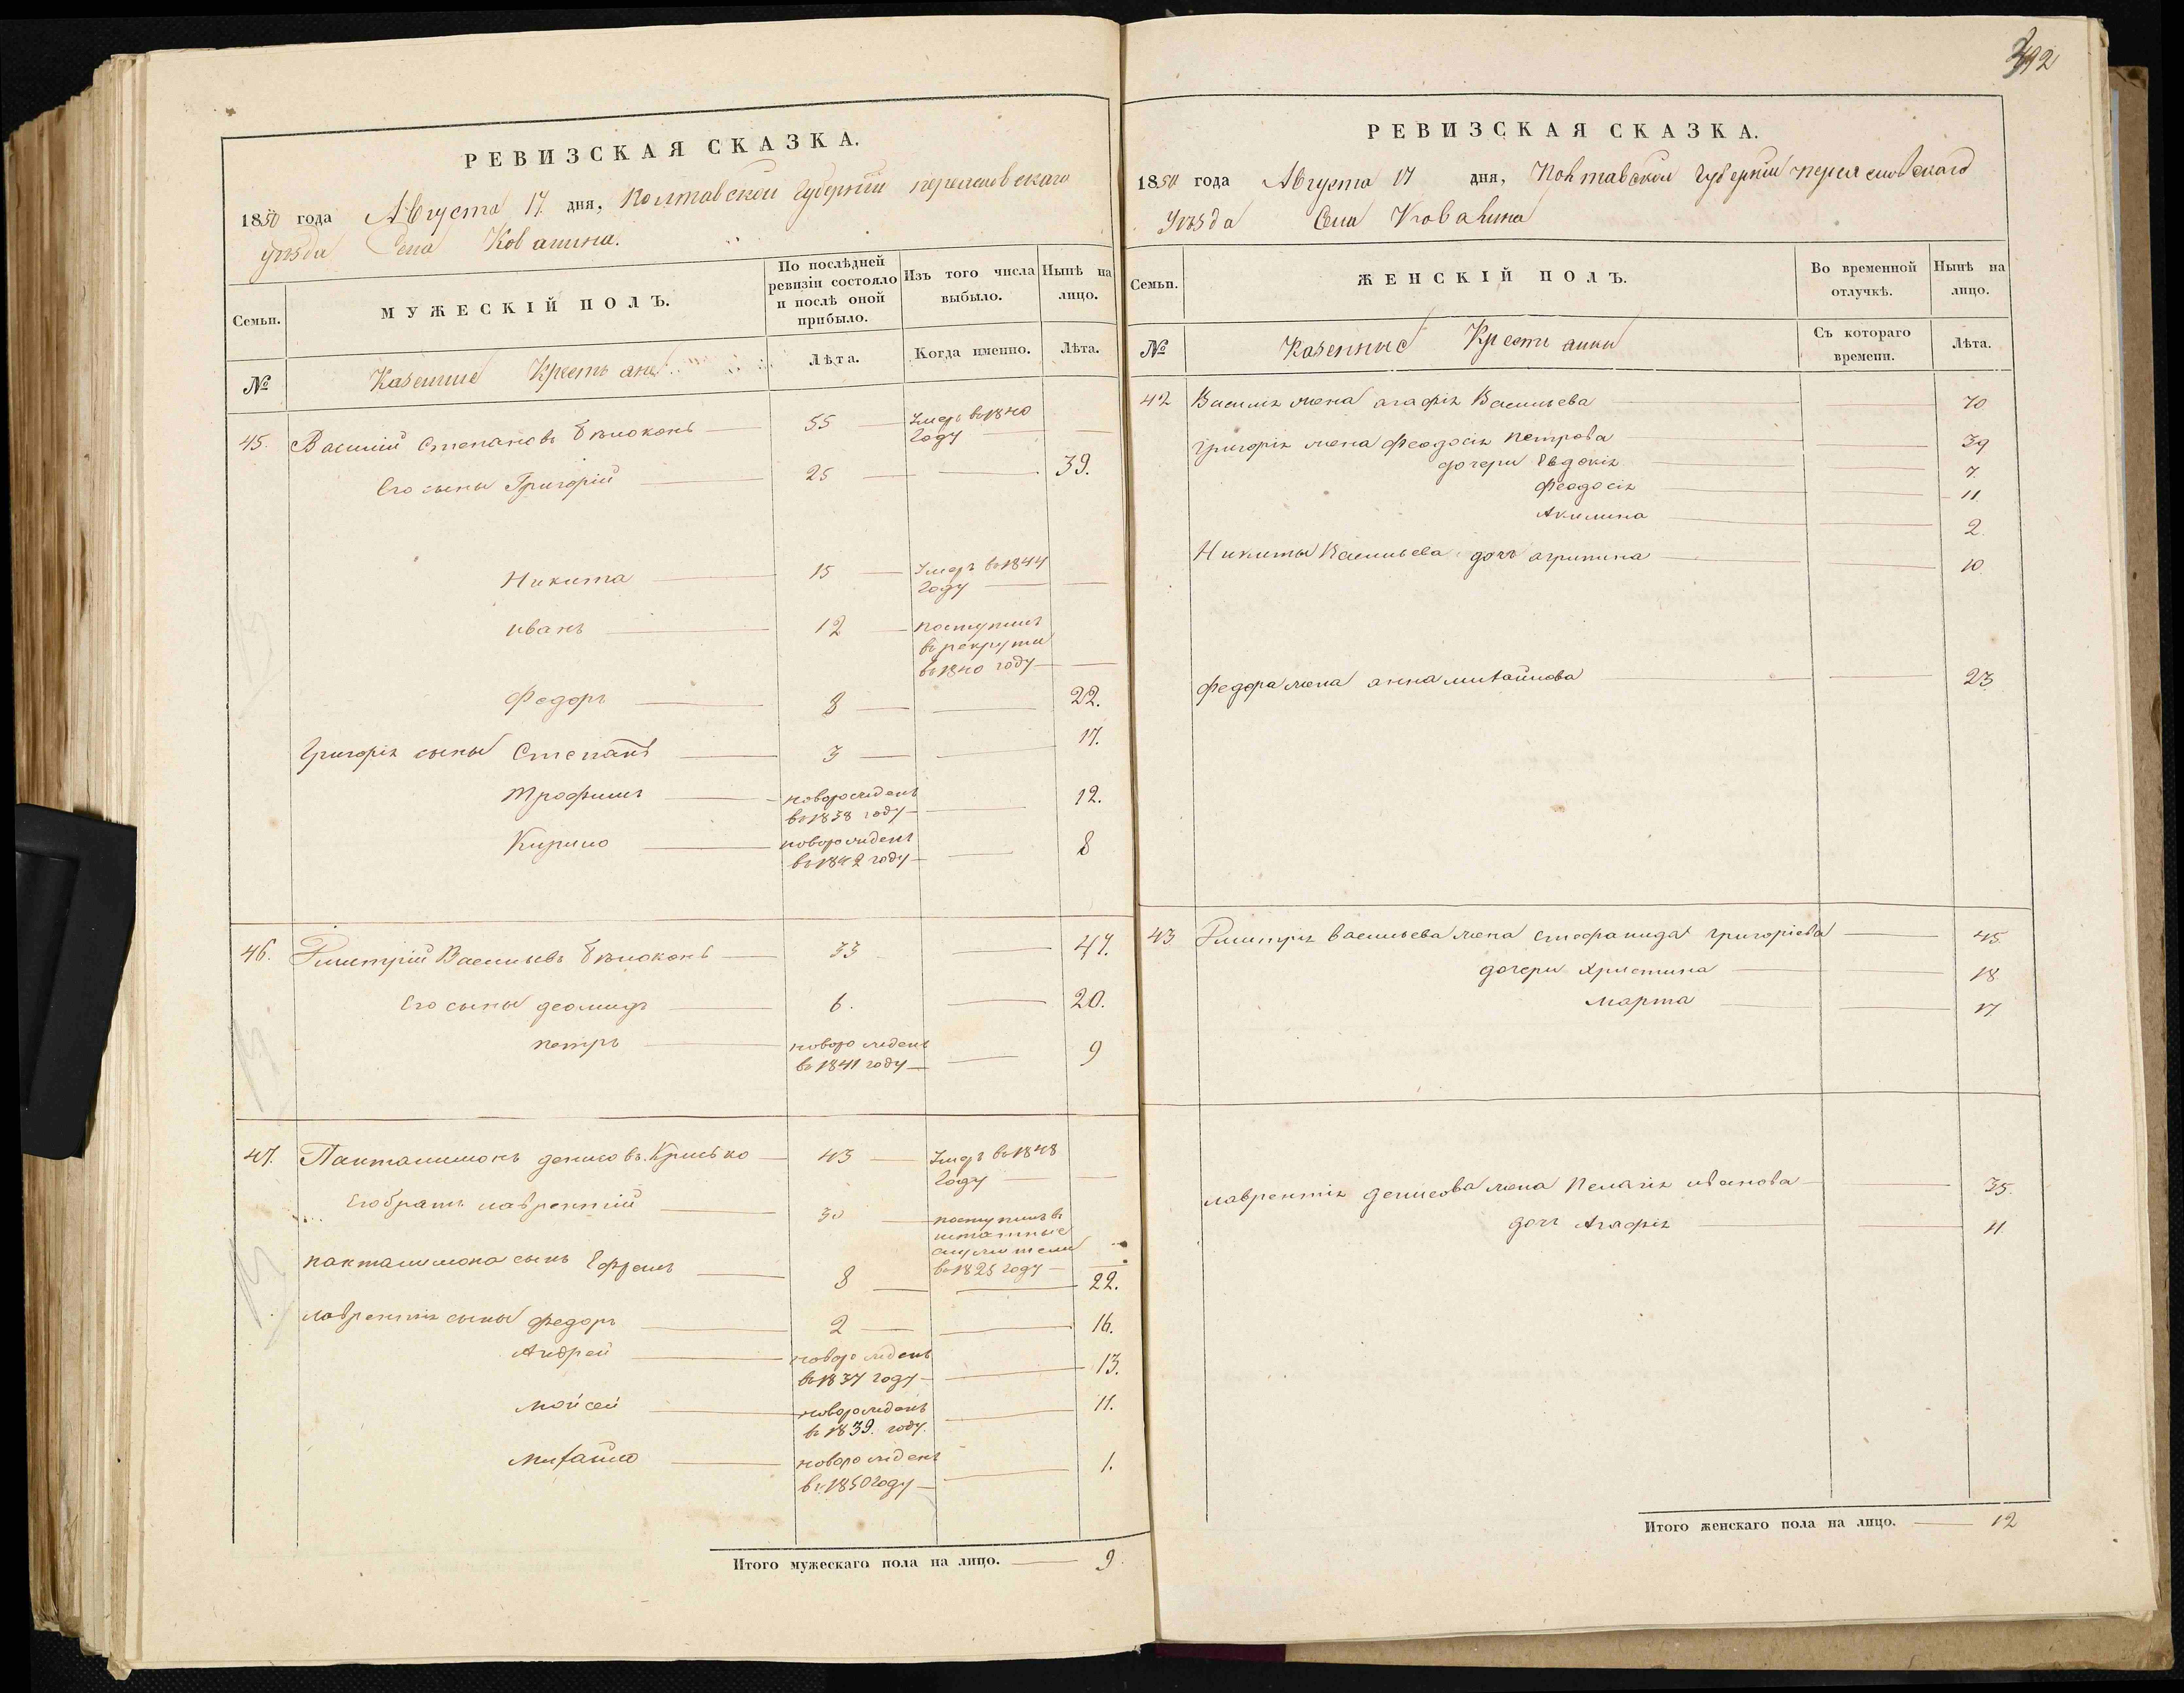 РЕВИЗСКАЯ СКАЗКА.
1850 года Августа 17 дня, Полтавской Губернїи переяславскаго
уѣзда Села Ковалина.
Семьи.
МУЖЕСКІЙ ПОЛЪ.
По послѣдней ревизіи состояло и послѣ оной прибыло.
Изъ того числа выбыло.
Нынѣ на лицо.
№
Казенние Крестьяне
Лѣта.
Когда именно.
Лѣта.
45. Василий Степановъ Бѣлоконь 55 Умеръ въ 1840
Году
Его сыны Григорій 25 39.
Никита 15 Умеръ въ 1844
Году
иванъ 12 поступилъ
въ рекруты
въ 1840 году
Федоръ 8 22.
Григорія сыны Степанъ 3 17.
Трофимъ новорожденъ 12.
въ 1838 году
Кирило новорожденъ 8
въ 1842 году
46. Дмитрій Васильевъ Бѣлоконь 33 47.
Его сыны деомидъ 6. 20.
петръ новорожденъ 9
въ 1841 году
47. Пантелимонъ денисовъ Крисько 43 Умеръ въ 1848
Году
Его братъ лаврентий 30 поступилъ въ
штатные
служители
въ 1825 году
пантелимона сынъ Ефремъ 8 22.
лаврентія сыны федоръ 2 16.
Андрей новорожденъ 13.
въ 1837 году
мойсей новорожденъ 11.
въ 1839. году.
михайло новорожденъ 1.
въ 1850 году
Итого мужескаго пола на лицо. 9.
РЕВИЗСКАЯ СКАЗКА.
1850 года Августа 17 дня, Полтавской Губернїи переяславскаго
Уѣзда Села Ковалина
Семьи.
ЖЕНСКІЙ ПОЛЪ.
Во временной отлучкѣ.
Нынѣ на лицо.
№
Казенные Крестянки
Съ котораго времени.
Лѣта.
42 Василія жена агафія Васильева 70
Григорія жена феодосія петрова 39
дочери Евдокія 7.
Феодосія 11
Акилина 2
Никиты Васильева дочь агрипина 10
федора жена анна михайлова 23
43 Дмитрія васильева жена стефанида григоріева 45
дочери христина 18
марта 17
лаврентія денисова жена пелагія иванова 35.
дочь Агафія 11
Итого женскаго пола на лицо. 12